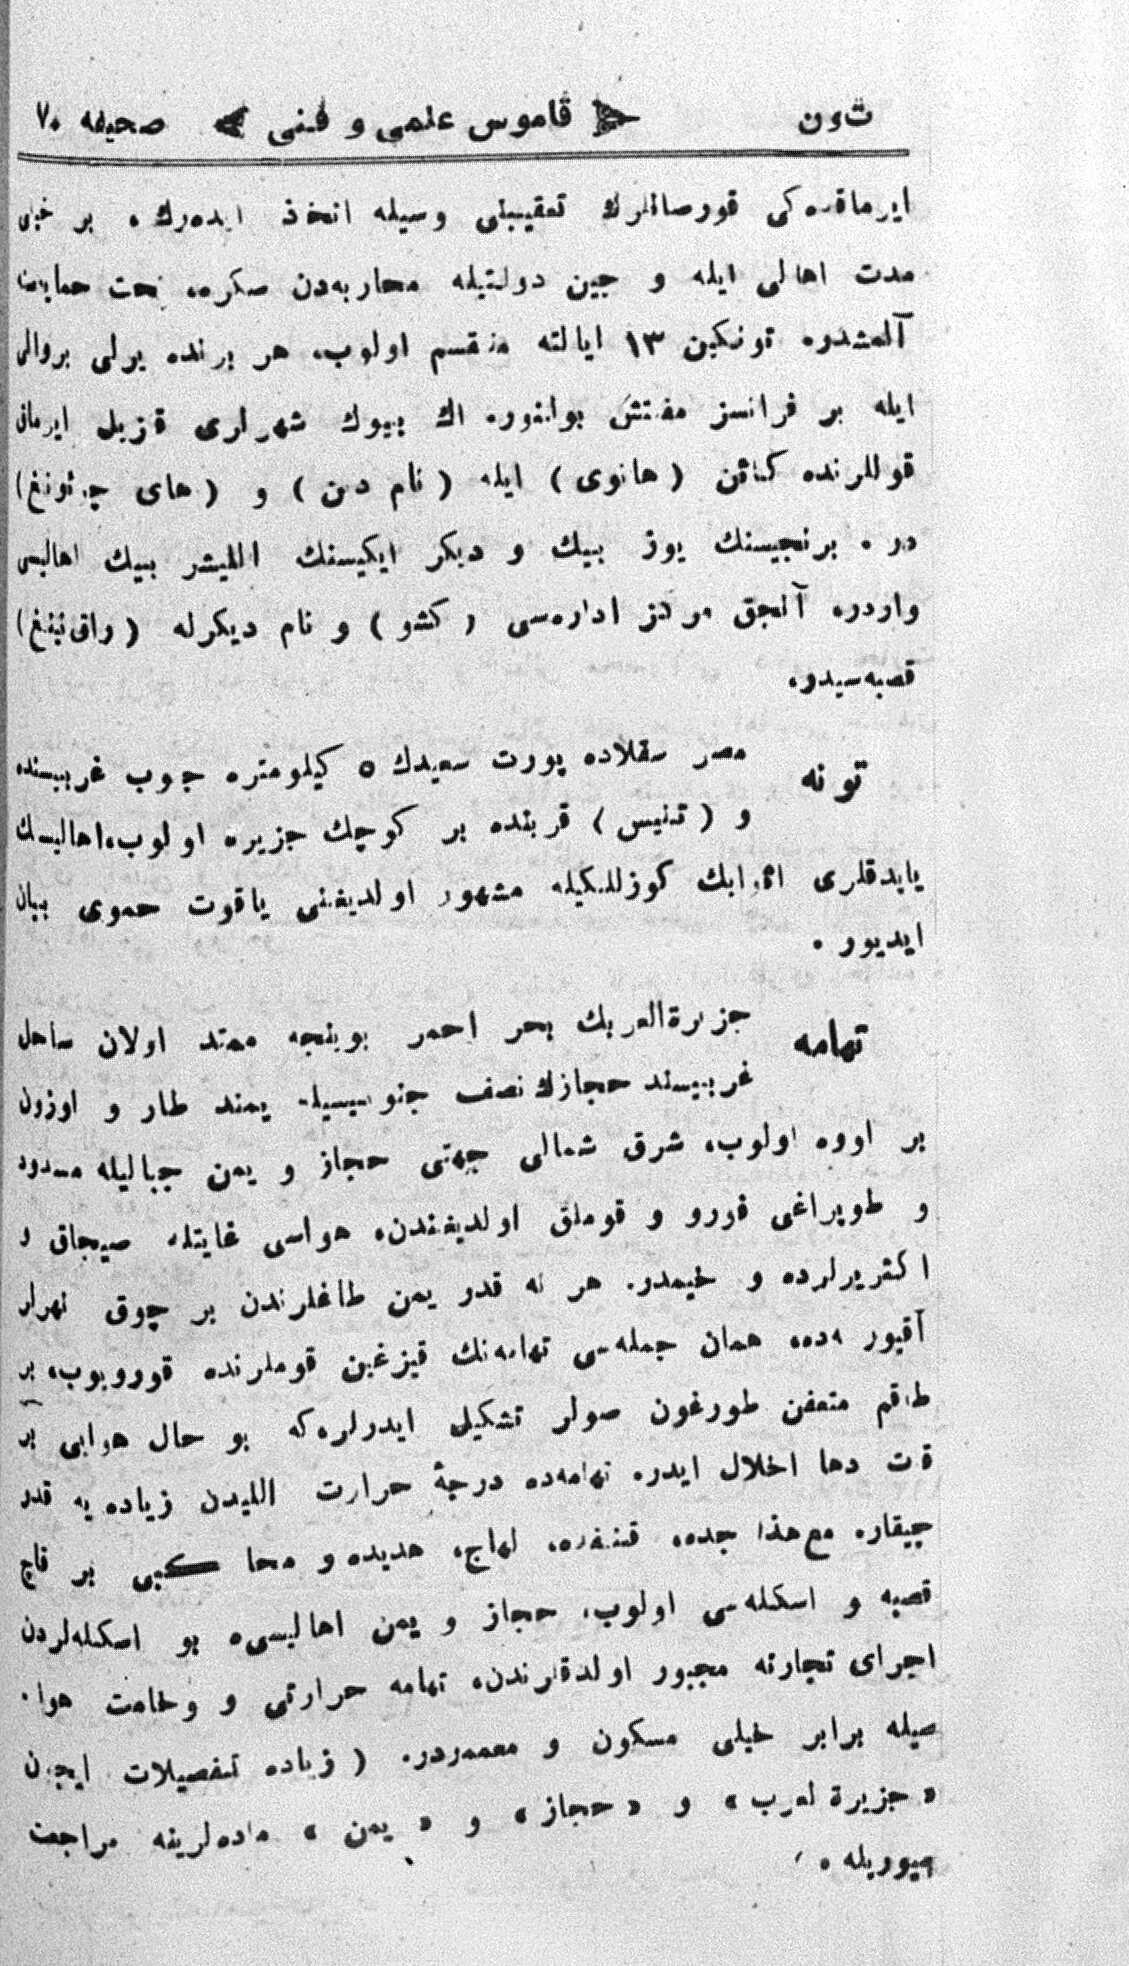 تون قاموس علمی و فنی صحیفه ۷۰
ایرماقده‌کی قورصانلرك تعقیبنی وسیله اتخاذ ایده‌رك، بر خیلی
مدت اهالی ایله و چین دولتیله محاربه‌دن صکره، تحت حمایه‌سنه
آلمشدر، تونکین ۱۳ ایالته منقسم اولوب، هر برنده یرلی بروالی
ایله بر فرانسز مفتش بولنور، اك بیوك شهرلری قزیل ایرماق
قوللرنده کائن (هانوی) ایله (نام دن) و (های چئونغ)
در . برنجیسنك یوز بیك و دیکر ایکیسنك اللیشر بیك اهالیسی
واردر، آنجق مرکز اداره‌سی (کشو) و نام دیکرله
قصبه‌سیدر.
تونه مصر سفلاده پورت سعیدك ۵ کیلومتره جنوب غربیسنده
و (تنیس) قربنده بر کوچك جزیره اولوب، اهالیسنك
یاپدقلری اثوابك کوزللکیله مشهور اولدیغنی یاقوت حموی بیان
ایدیور .
تهامه جزیرةالعربك بحر احمر بوینجه ممتد اولان ساحل
غربیسنده حجازك نصف جنوبیسیله یمنده طار و اوزون
بر اووه اولوب، شرق شمالی جهتی حجاز و یمن جبالیله مسدود
و طوپراغی قورو و قوملق اولدیغندن، هواسی غایتله صیجاق و
اکثریرلرده و خیمدر. هر نه قدر یمن طاغلرندن بر چوق نهرلر
آقیورسه‌ده، همان جمله‌سی تهامه‌نك قیزغین قوملرنده قورویوب، بر
طاقم متعفن طورغون صولر تشکیل ایدرلرکه بو حال هوایی بر
قات دها اخلال ایدر، تهامه‌ده درجۀ حرارت اللیدن زیاده یه قدر
چیقار. مع‌هذا جده، قنفده، لهاج، حدیده و مخا کبی بر قاچ
قصبه و اسکله‌سی اولوب، حجاز و یمن اهالیسی، بو اسکله‌لردن
اجرای تجارته مجبور اولدقلرندن، تهامه حرارتی و وخامت هوا
سیله برابر خیلی مسکون و معموردر. (زیاده تفصیلات ایچون
«جزیرة العرب» و «حجاز» و «یمن» ماده‌لرینه مراجعت
بیوریله .